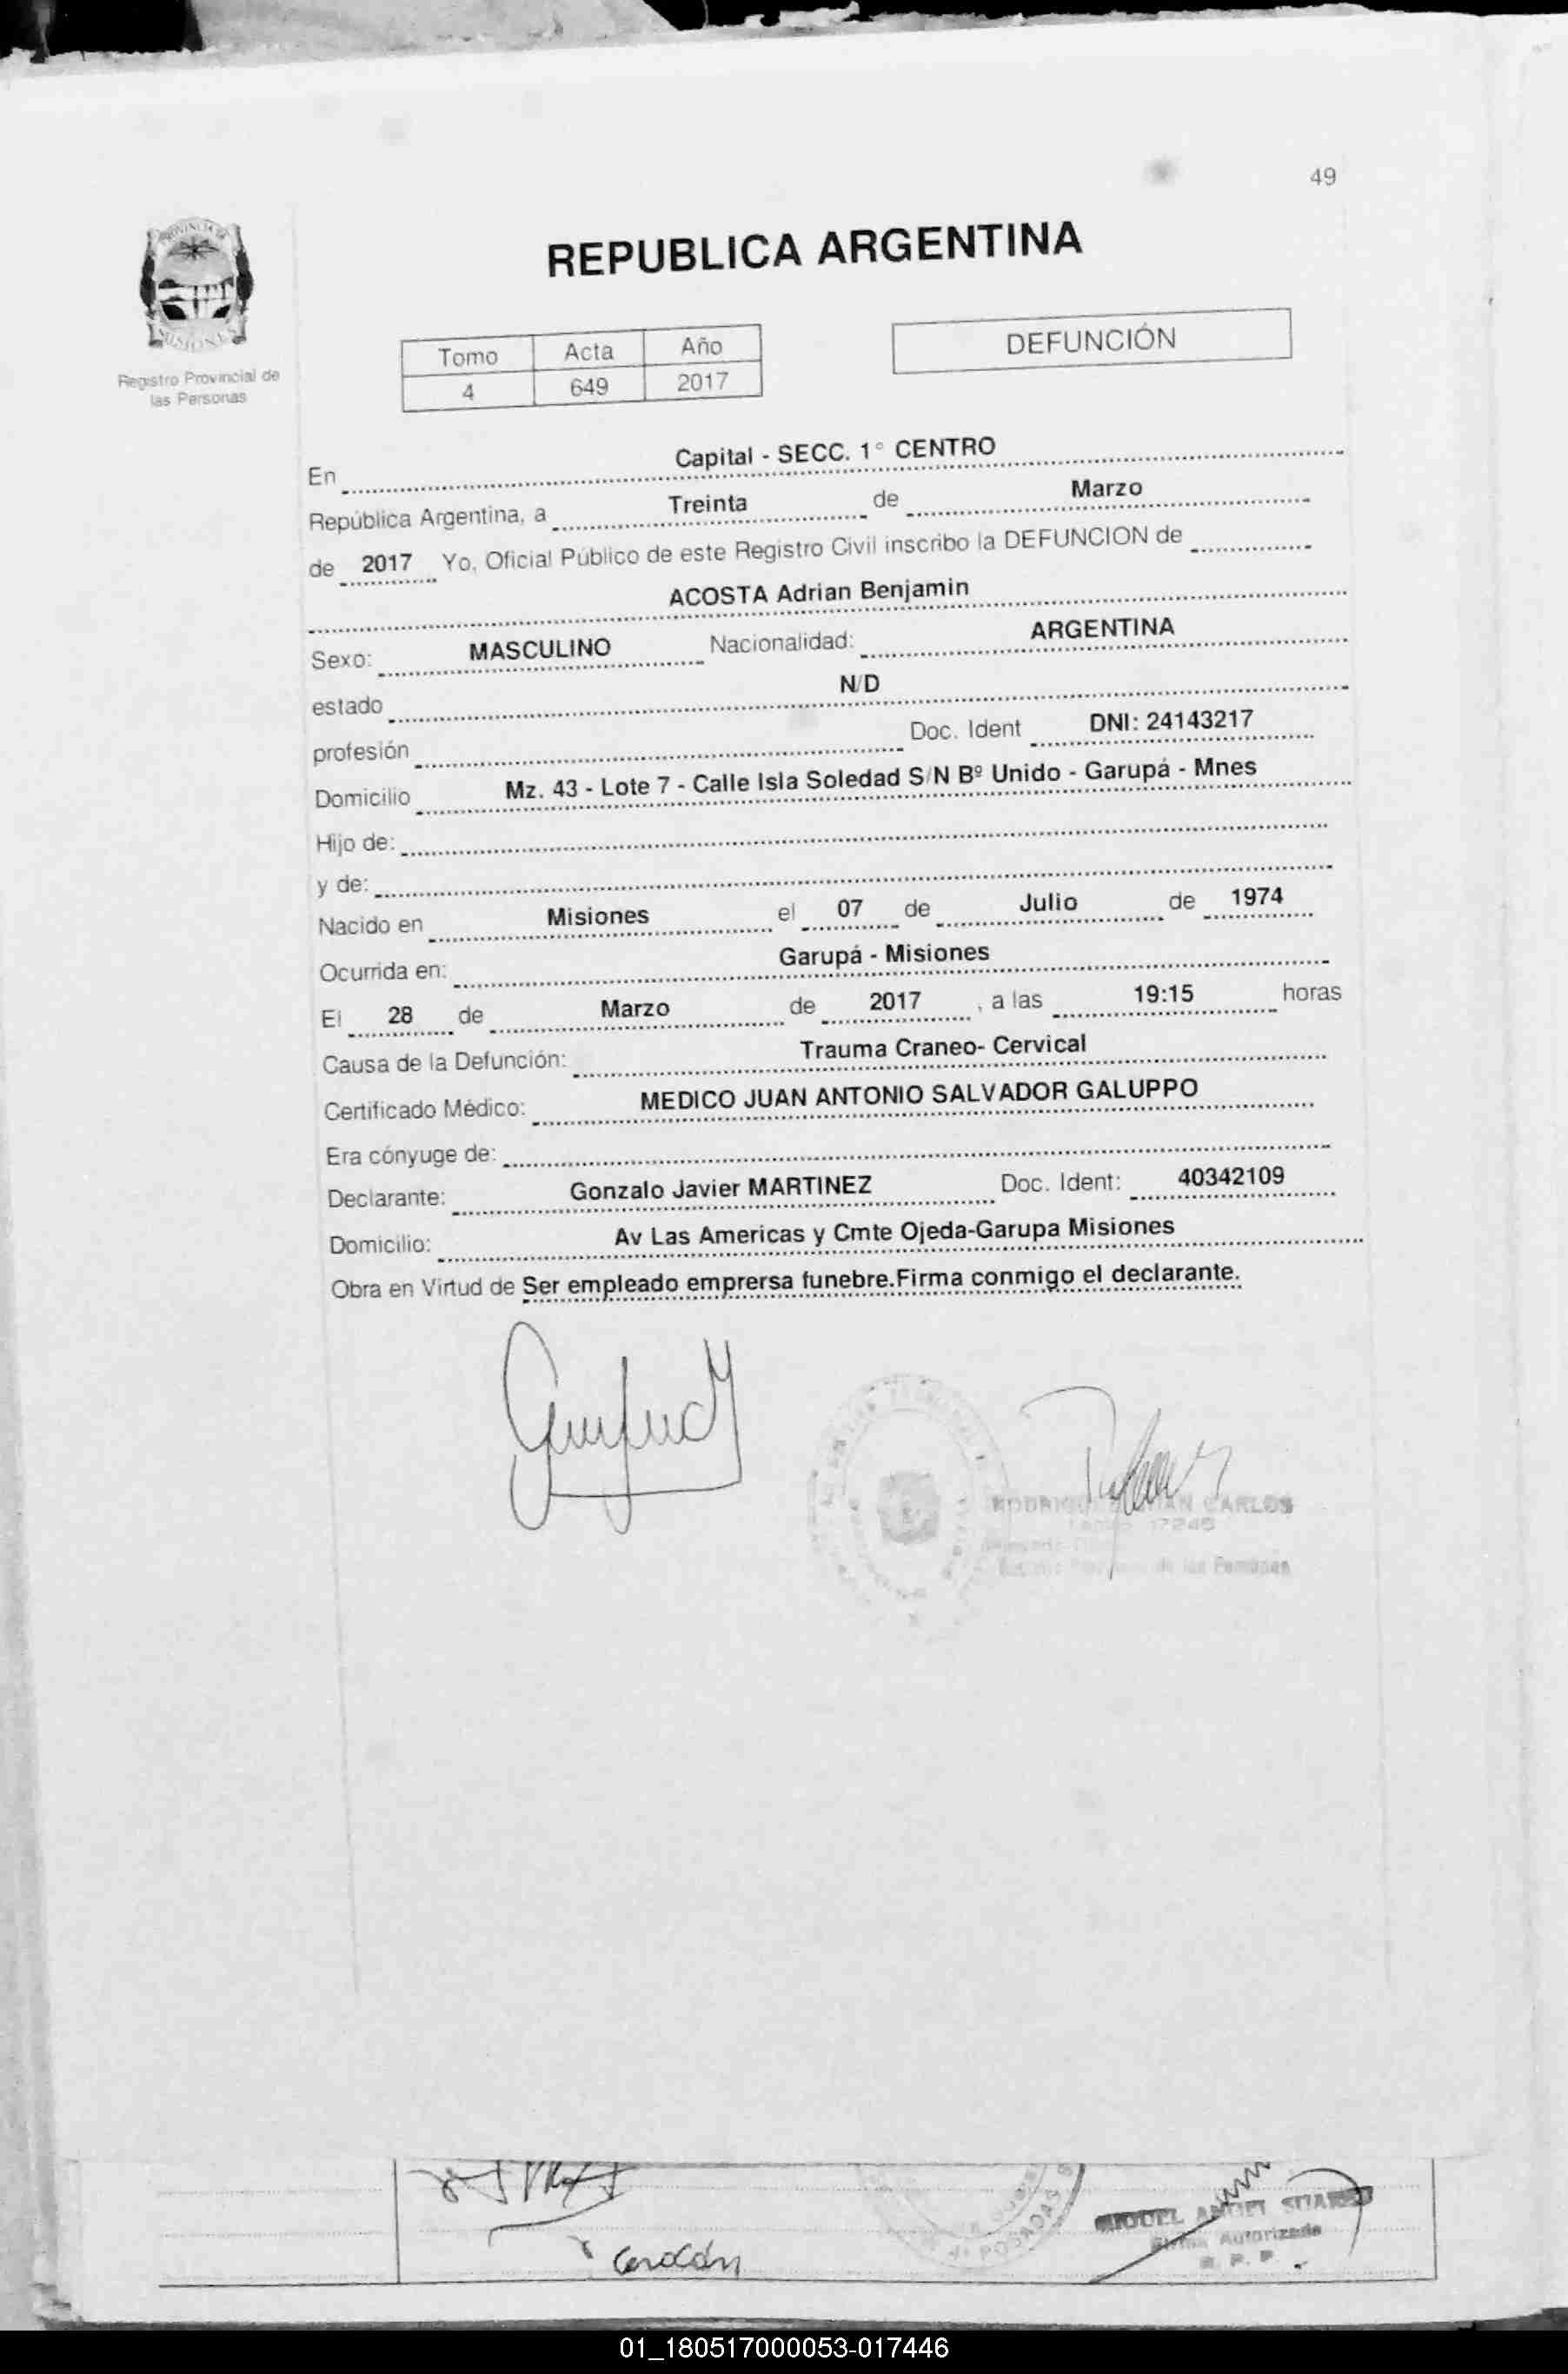 49
PROVINCIA DE
MISIONES
Registro Provincial de
las Personas
REPUBLICA ARGENTINA
Tomo Acta Año
4 649 2017
DEFUNCIÓN
En Capital - SECC. 1° CENTRO
República Argentina, a Treinta de Marzo
de 2017 Yo, Oficial Público de este Registro Civil inscribo la DEFUNCION de
ACOSTA Adrian Benjamin
Sexo: MASCULINO Nacionalidad: ARGENTINA
estado N/D
profesión Doc. Ident DNI: 24143217
Domicilio Mz. 43 - Lote 7 - Calle Isla Soledad S/N Bº Unido - Garupá - Mnes
Hijo de:
y de:
Nacido en Misiones el 07 de Julio de 1974
Ocurrida en: Garupá - Misiones
El 28 de Marzo de 2017 , a las 19:15 horas
Causa de la Defunción: Trauma Craneo- Cervical
Certificado Médico: MEDICO JUAN ANTONIO SALVADOR GALUPPO
Era cónyuge de:
Declarante: Gonzalo Javier MARTINEZ Doc. Ident: 40342109
Domicilio: Av Las Americas y Cmte Ojeda-Garupa Misiones
Obra en Virtud de Ser empleado emprersa funebre.Firma conmigo el declarante.
CARLOS
de las Personas
POSADAS
MIGUEL ANGEL SUAREZ
Firma Autorizada
R. P. P.
01_180517000053-017446